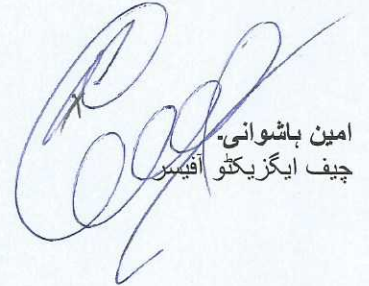 امین ہاشوانی۔
چیف ایگزیکٹو آفیسر